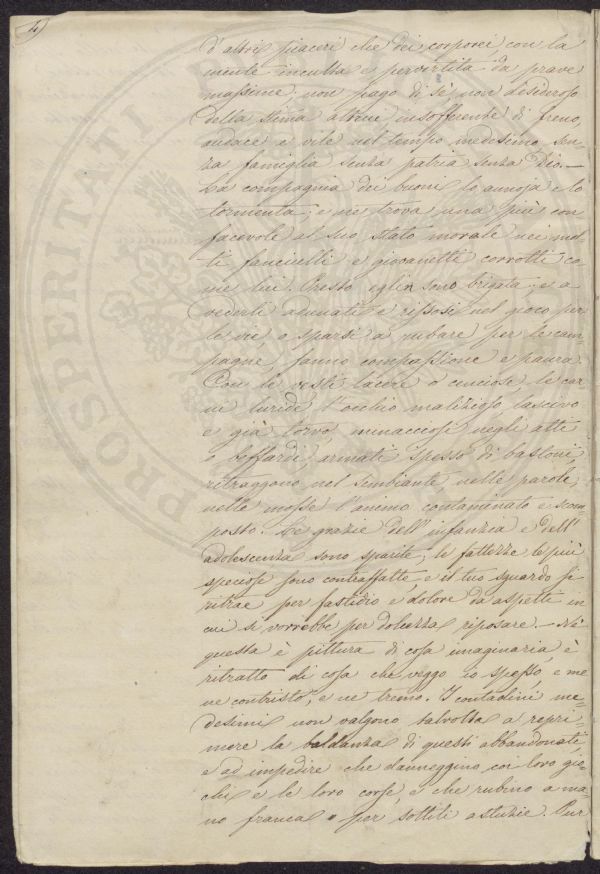 4)
d'altri piaceri che dei corporei, con la
mente inculta e pervertita da prave
massime; non pago di sè, non desideroso
della stima altrui insofferente di freno,
audace e vile nel tempo medesimo sen-
za famiglia senza patria senza Dio. —
La compagnia dei buoni lo annoja e lo
tormenta; e ne trova una più con
facevole al suo stato morale nei mol-
ti fanciulli e giovanetti corrotti co-
me lui. Presto eglin sono brigata; e a
vederli adunati e rissosi nel gioco per
le vie o sparsi a rubare per le cam-
pagne, fanno compassione e paura.
Con le vesti lacere o cenciose, le car
ni luride, l'occhio malizioso, lascivo
e già torvo, minacciosi negli atti
o beffardi, armati spesso di bastoni
ritraggono nel sembiante nelle parole,
nelle mosse l'animo contaminato e scom-
posto. Le grazie dell'infanzia e dell'
adolescenza sono sparite; le fattezze le più
speciose sono contraffatte, e il tuo sguardo si
ritrae per fastidio e dolore da aspetti in
cui si vorrebbe per dolcezza riposare. — Nè
questa è pittura di cosa imaginaria, è
ritratto di cosa che veggo io spesso, e me
ne contristo, e ne tremo. I contadini me-
desimi non valgono talvolta a repri-
mere la baldanza di questi abbandonati
e ad impedire che danneggino coi loro gio-
chi e le loro corse, e che rubino a ma-
no franca o per sottili astuzie. Pur
PROSPERITATI